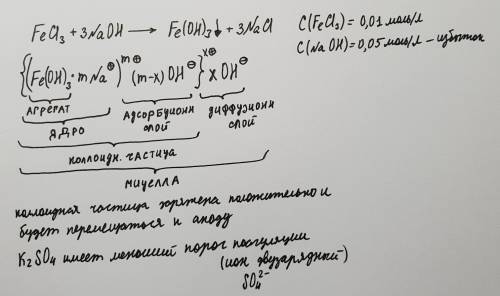 FeCl₃ + 3NaOH ⟶ Fe(OH)₃↓ + 3NaCl
C(FeCl₃) = 0,01 моль/л
C(NaOH) = 0,05 моль/л – избыток
{(Fe(OH)₃·mNa⊕)ᵐ⊕ (m-x)OH⊖}ˣ⊕ xOH⊖
АГРЕГАТ
ЯДРО
АДСОРБЦИОНН
СЛОЙ
ДИФФУЗИОНН
СЛОЙ
КОЛЛОИДН. ЧАСТИЦА
МИЦЕЛЛА
коллоидная частица заряжена положительно и
будет перемещаться к аноду
K₂SO₄ имеет меньший порог коагуляции
(ион двузарядный)
SO₄²⁻